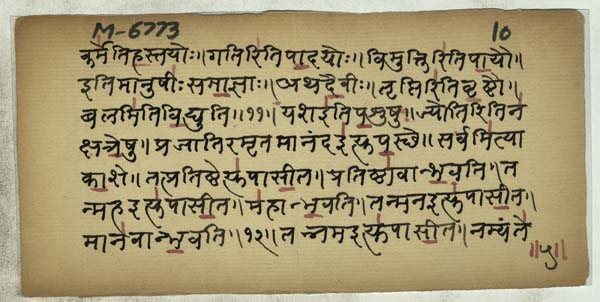 M-6773
10
कर्मेतिहस्तयोः॥गतिरितिपादयोः॥विमुक्तिरितिपायौ॥
इतिमानुषीःसमाज्ञाः॥अथदैवीः॥तृप्तिरितिवृष्टौ॥
बलमितिविद्युति॥११॥यशइतिपशुषु॥ज्योतिरितिन
क्षत्रेषु॥प्रजातिरमृतमानंदइत्युपस्थे॥सर्वमित्या
काशे॥तत्प्रतिष्ठेत्युपासीत॥प्रतिष्ठावान्भवति॥त
न्महइत्युपासीत॥महान्भवति॥तन्मनइत्युपासीत॥
मानवान्भवति॥१२॥तन्नमइत्युपासीत॥नम्यंते
॥५॥